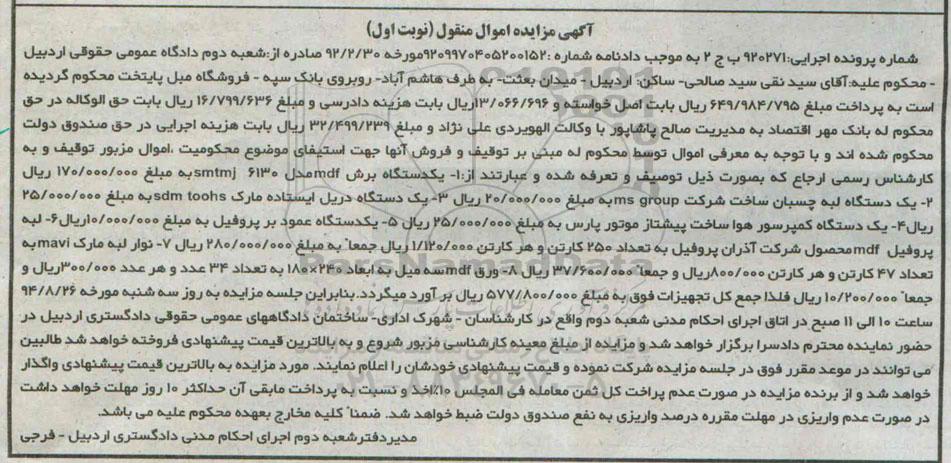 آگهی مزایده اموال منقول (نوبت اول)
شماره پرونده اجرایی:۹۲۰۲۷۱ ب ج ۲ به موجب دادنامه شماره :۹۲۰۹۹۷۰۴۰۵۲۰۰۱۵۲مورخه ۹۲/۲/۳۰ صادره از:شعبه دوم دادگاه عمومی حقوقی اردبیل
- محکوم علیه:آقای سید نقی سید صالحی- ساکن: اردبیل - میدان بعثت- به طرف هاشم آباد- روبروی بانک سپه - فروشگاه مبل پایتخت محکوم گردیده
است به پرداخت مبلغ ۶۴۹/۹۸۴/۷۹۵ ریال بابت اصل خواسته و ۱۳/۰۶۶/۶۹۶ریال بابت هزینه دادرسی و مبلغ ۱۶/۷۹۹/۶۳۶ ریال بابت حق الوکاله در حق
محکوم له بانک مهر اقتصاد به مدیریت صالح پاشاپور با وکالت الهویردی علی نژاد و مبلغ ۳۲/۴۹۹/۲۳۹ ریال بابت هزینه اجرایی در حق صندوق دولت
محکوم شده اند و با توجه به معرفی اموال توسط محکوم له مبنی بر توقیف و فروش آنها جهت استیفای موضوع محکومیت ،اموال مزبور توقیف و به
کارشناس رسمی ارجاع که بصورت ذیل توصیف و تعرفه شده و عبارتند از:۱- یکدستگاه برش mdfمدل ۶۱۳۰ smtmjبه مبلغ ۱۷۰/۰۰۰/۰۰۰ ریال
۲- یک دستگاه لبه چسبان ساخت شرکت ms groupبه مبلغ ۲۰/۰۰۰/۰۰۰ ریال ۳- یک دستگاه دریل ایستاده مارک sdm toohsبه مبلغ ۲۵/۰۰۰/۰۰۰
ریال۴- یک دستگاه کمپرسور هوا ساخت پیشتاز موتور پارس به مبلغ ۲۵/۰۰۰/۰۰۰ ریال ۵- یکدستگاه عمود بر پروفیل به مبلغ ۱۰/۰۰۰/۰۰۰ریال۶- لبه
پروفیل mdfمحصول شرکت آذران پروفیل به تعداد ۲۵۰ کارتن و هر کارتن ۱/۱۲۰/۰۰۰ ریال جمعاً به مبلغ ۲۸۰/۰۰۰/۰۰۰ ریال ۷- نوار لبه مارک maviبه
تعداد ۴۷ کارتن و هر کارتن ۸۰۰/۰۰۰ریال و جمعاً ۳۷/۶۰۰/۰۰۰ ریال ۸- ورق mdfسه میل به ابعاد ۲۴۰×۱۸۰ به تعداد ۳۴ عدد و هر عدد ۳۰۰/۰۰۰ریال و
جمعاً ۱۰/۲۰۰/۰۰۰ ریال فلذا جمع کل تجهیزات فوق به مبلغ ۵۷۷/۸۰۰/۰۰۰ ریال بر آورد میگردد.بنابراین جلسه مزایده به روز سه شنبه مورخه ۹۴/۸/۲۶
ساعت ۱۰ الی ۱۱ صبح در اتاق اجرای احکام مدنی شعبه دوم واقع در کارشناسان - شهرک اداری- ساختمان دادگاههای عمومی حقوقی دادگستری اردبیل در
حضور نماینده محترم دادسرا برگزار خواهد شد و مزایده از مبلغ معینه کارشناسی مزبور شروع و به بالاترین قیمت پیشنهادی فروخته خواهد شد طالبین
می توانند در موعد مقرر فوق در جلسه مزایده شرکت نموده و قیمت پیشنهادی خودشان را اعلام نمایند. مورد مزایده به بالاترین قیمت پیشنهادی واگذار
خواهد شد و از برنده مزایده در صورت عدم پراخت کل ثمن معامله فی المجلس ۱۰٪اخذ و نسبت به پرداخت مابقی آن حداکثر ۱۰ روز مهلت خواهد داشت
در صورت عدم واریزی در مهلت مقرره درصد واریزی به نفع صندوق دولت ضبط خواهد شد. ضمناً کلیه مخارج بعهده محکوم علیه می باشد.
مدیردفترشعبه دوم اجرای احکام مدنی دادگستری اردبیل - فرجی
ParsNamadData